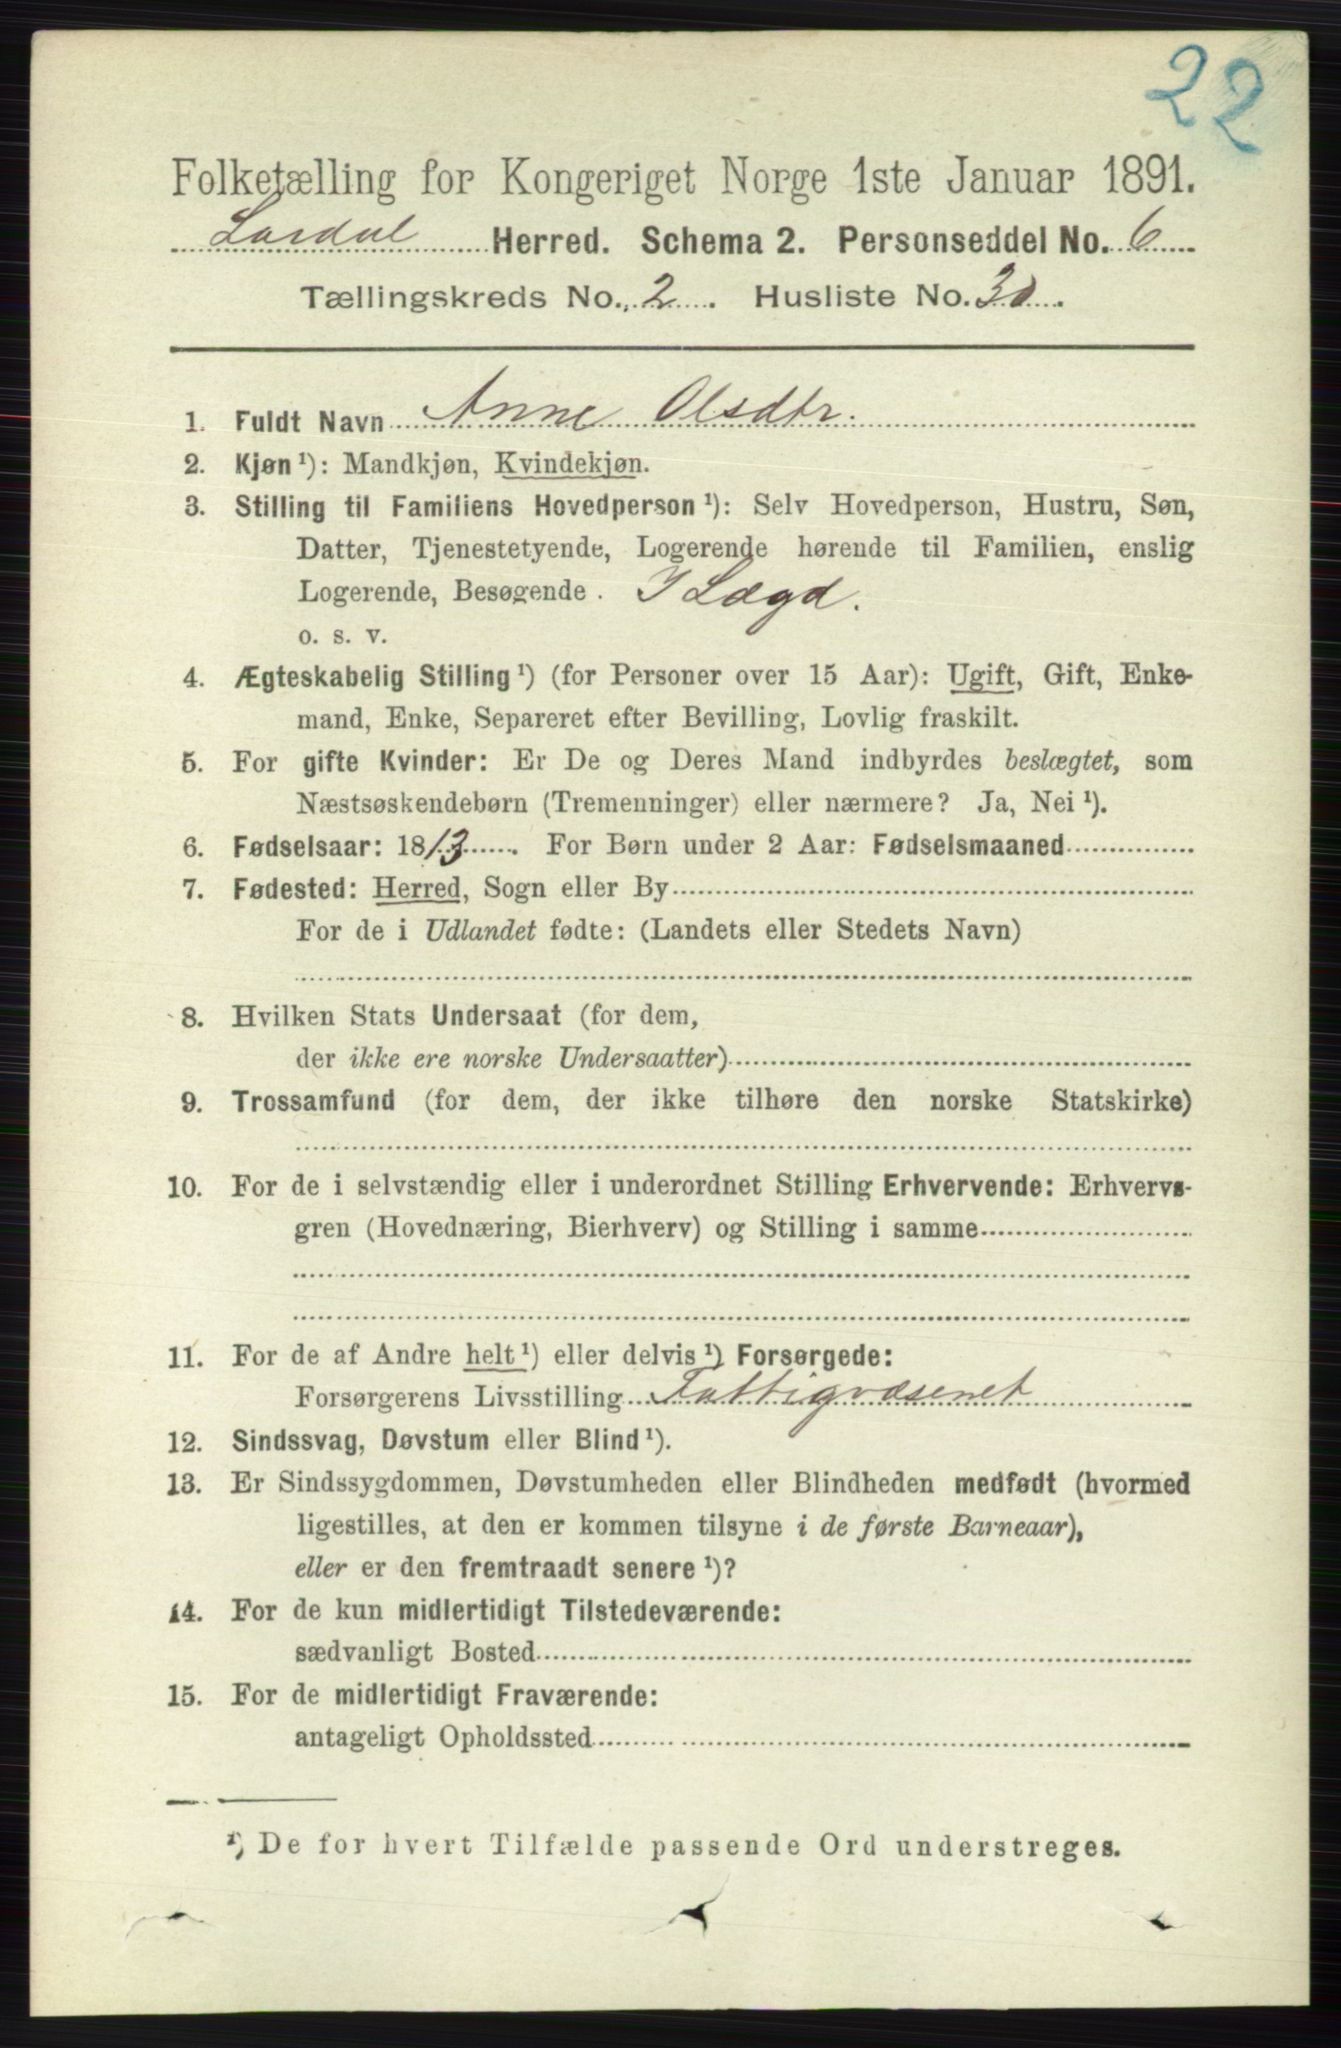 22
Folketælling for Kongeriget Norge 1ste Januar 1891.
Lardal Herred. Schema 2. Personseddel No. 6
Tællingskreds No. 2. Husliste No. 30.
1. Fuldt Navn Anne Olsdtr.
2. Kjøn ¹): Mandkjøn, Kvindekjøn.
3. Stilling til Familiens Hovedperson ¹): Selv Hovedperson, Hustru, Søn,
Datter, Tjenestetyende, Logerende hørende til Familien, enslig
Logerende, Besøgende. I Lægd.
o. s. v.
4. Ægteskabelig Stilling ¹) (for Personer over 15 Aar): Ugift, Gift, Enke-
mand, Enke, Separeret efter Bevilling, Lovlig fraskilt.
5. For gifte Kvinder: Er De og Deres Mand indbyrdes beslægtet, som
Næstsøskendebørn (Tremenninger) eller nærmere? Ja, Nei ¹).
6. Fødselsaar: 1813. For Børn under 2 Aar: Fødselsmaaned
7. Fødested: Herred, Sogn eller By
For de i Udlandet fødte: (Landets eller Stedets Navn)
8. Hvilken Stats Undersaat (for dem,
der ikke ere norske Undersaatter)
9. Trossamfund (for dem, der ikke tilhøre den norske Statskirke)
10. For de i selvstændig eller i underordnet Stilling Erhvervende: Erhvervs-
gren (Hovednæring, Bierhverv) og Stilling i samme
11. For de af Andre helt ¹) eller delvis ¹) Forsørgede:
Forsørgerens Livsstilling Fattigvæsenet
12. Sindssvag, Døvstum eller Blind ¹).
13. Er Sindssygdommen, Døvstumheden eller Blindheden medfødt (hvormed
ligestilles, at den er kommen tilsyne i de første Barneaar),
eller er den fremtraadt senere ¹)?
14. For de kun midlertidigt Tilstedeværende:
sædvanligt Bosted
15. For de midlertidigt Fraværende:
antageligt Opholdssted
¹) De for hvert Tilfælde passende Ord understreges.